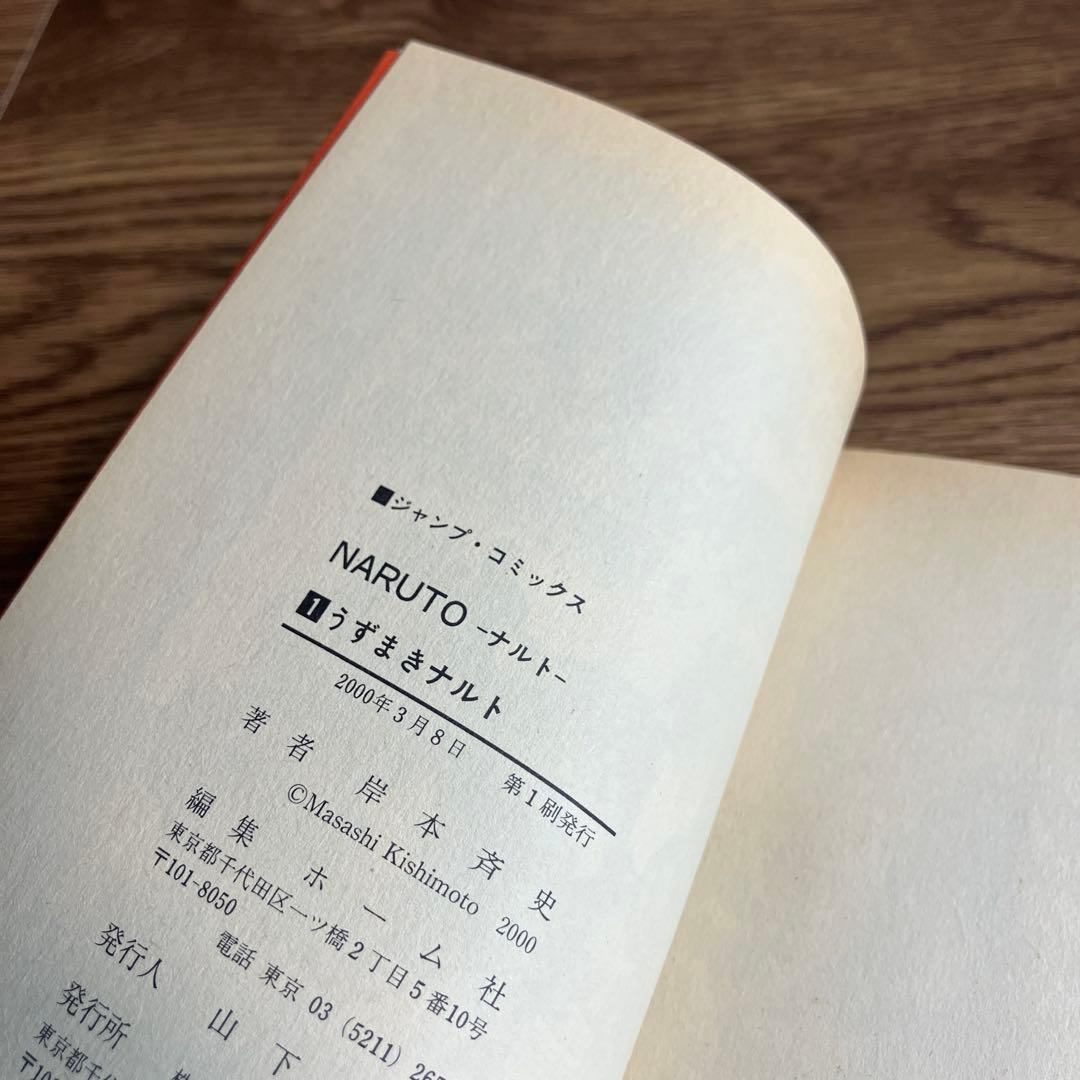 ■ジャンプ・コミックス
NARUTO -ナルト-
1 うずまきナルト
2000年3月8日 第1刷発行
著者 岸本斉史
©Masashi Kishimoto 2000
編集 ホーム社
東京都千代田区一ツ橋2丁目5番10号
〒101-8050
電話 東京 03 (5211) 265
発行人 山下
発行所 株
東京都千代田区一ツ
〒10